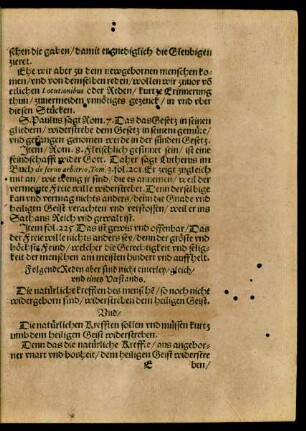 schen die gaben / damit er gnediglich die Gleubigen
zieret.
Ehe wir aber zu dem newgebornen menschen ko-
men / vnd von demselben reden / wollen wir zuuor vō
etlichen Locutionibus oder Reden / kurtze Erinnerung
thun / zuuermeiden vnnötiges gezenck / in vnd vber
diesen Stücken.
S. Paulus sagt Rom. 7. Das das Gesetz in seinen
gliedern / widerstrebe dem Gesetz in seinem gemüte /
vnd gefangen genomen werde in der sünden Gesetz.
Item / Rom. 8. Fleischlich gesinnet sein / ist eine
feindschafft wider Gott. Daher sagt Lutherus im
Buch de seruo arbitrio, Tom. 3. fol. 201. Er zeigt zugleich
mit an / wie wenig jr sind / die es annemen / weil der
vermeinte Freie wille widerstrebet. Denn derselbige
kan vnd vermag nichts anders / denn die Gnade vnd
heiligen Geist verachten vnd verstossen / weil er ins
Sathans Reich vnd gewalt ist.
Item fol. 225. Das ist gewis vnd offenbar / Das
der Freie wille nichts anders sey / denn der gröste vnd
höchste Feind / welcher die Gerechtigkeit vnd selig-
keit der menschen am meisten hindert vnd auffhelt.
Folgende Reden aber sind nicht einerley / gleich /
vnd eines Verstands.
Die natürliche krefften des menschē / so noch nicht
widergeborn sind / widerstreben dem heiligen Geist.
Vnd /
Die natürlichen Krefften sollen vnd müssen kurtz
vmb dem heiligen Geist widerstreben.
Denn das die natürliche Kreffte / aus angebor-
ner vnart vnd bosheit / dem heiligen Geist widerstre
E ben /